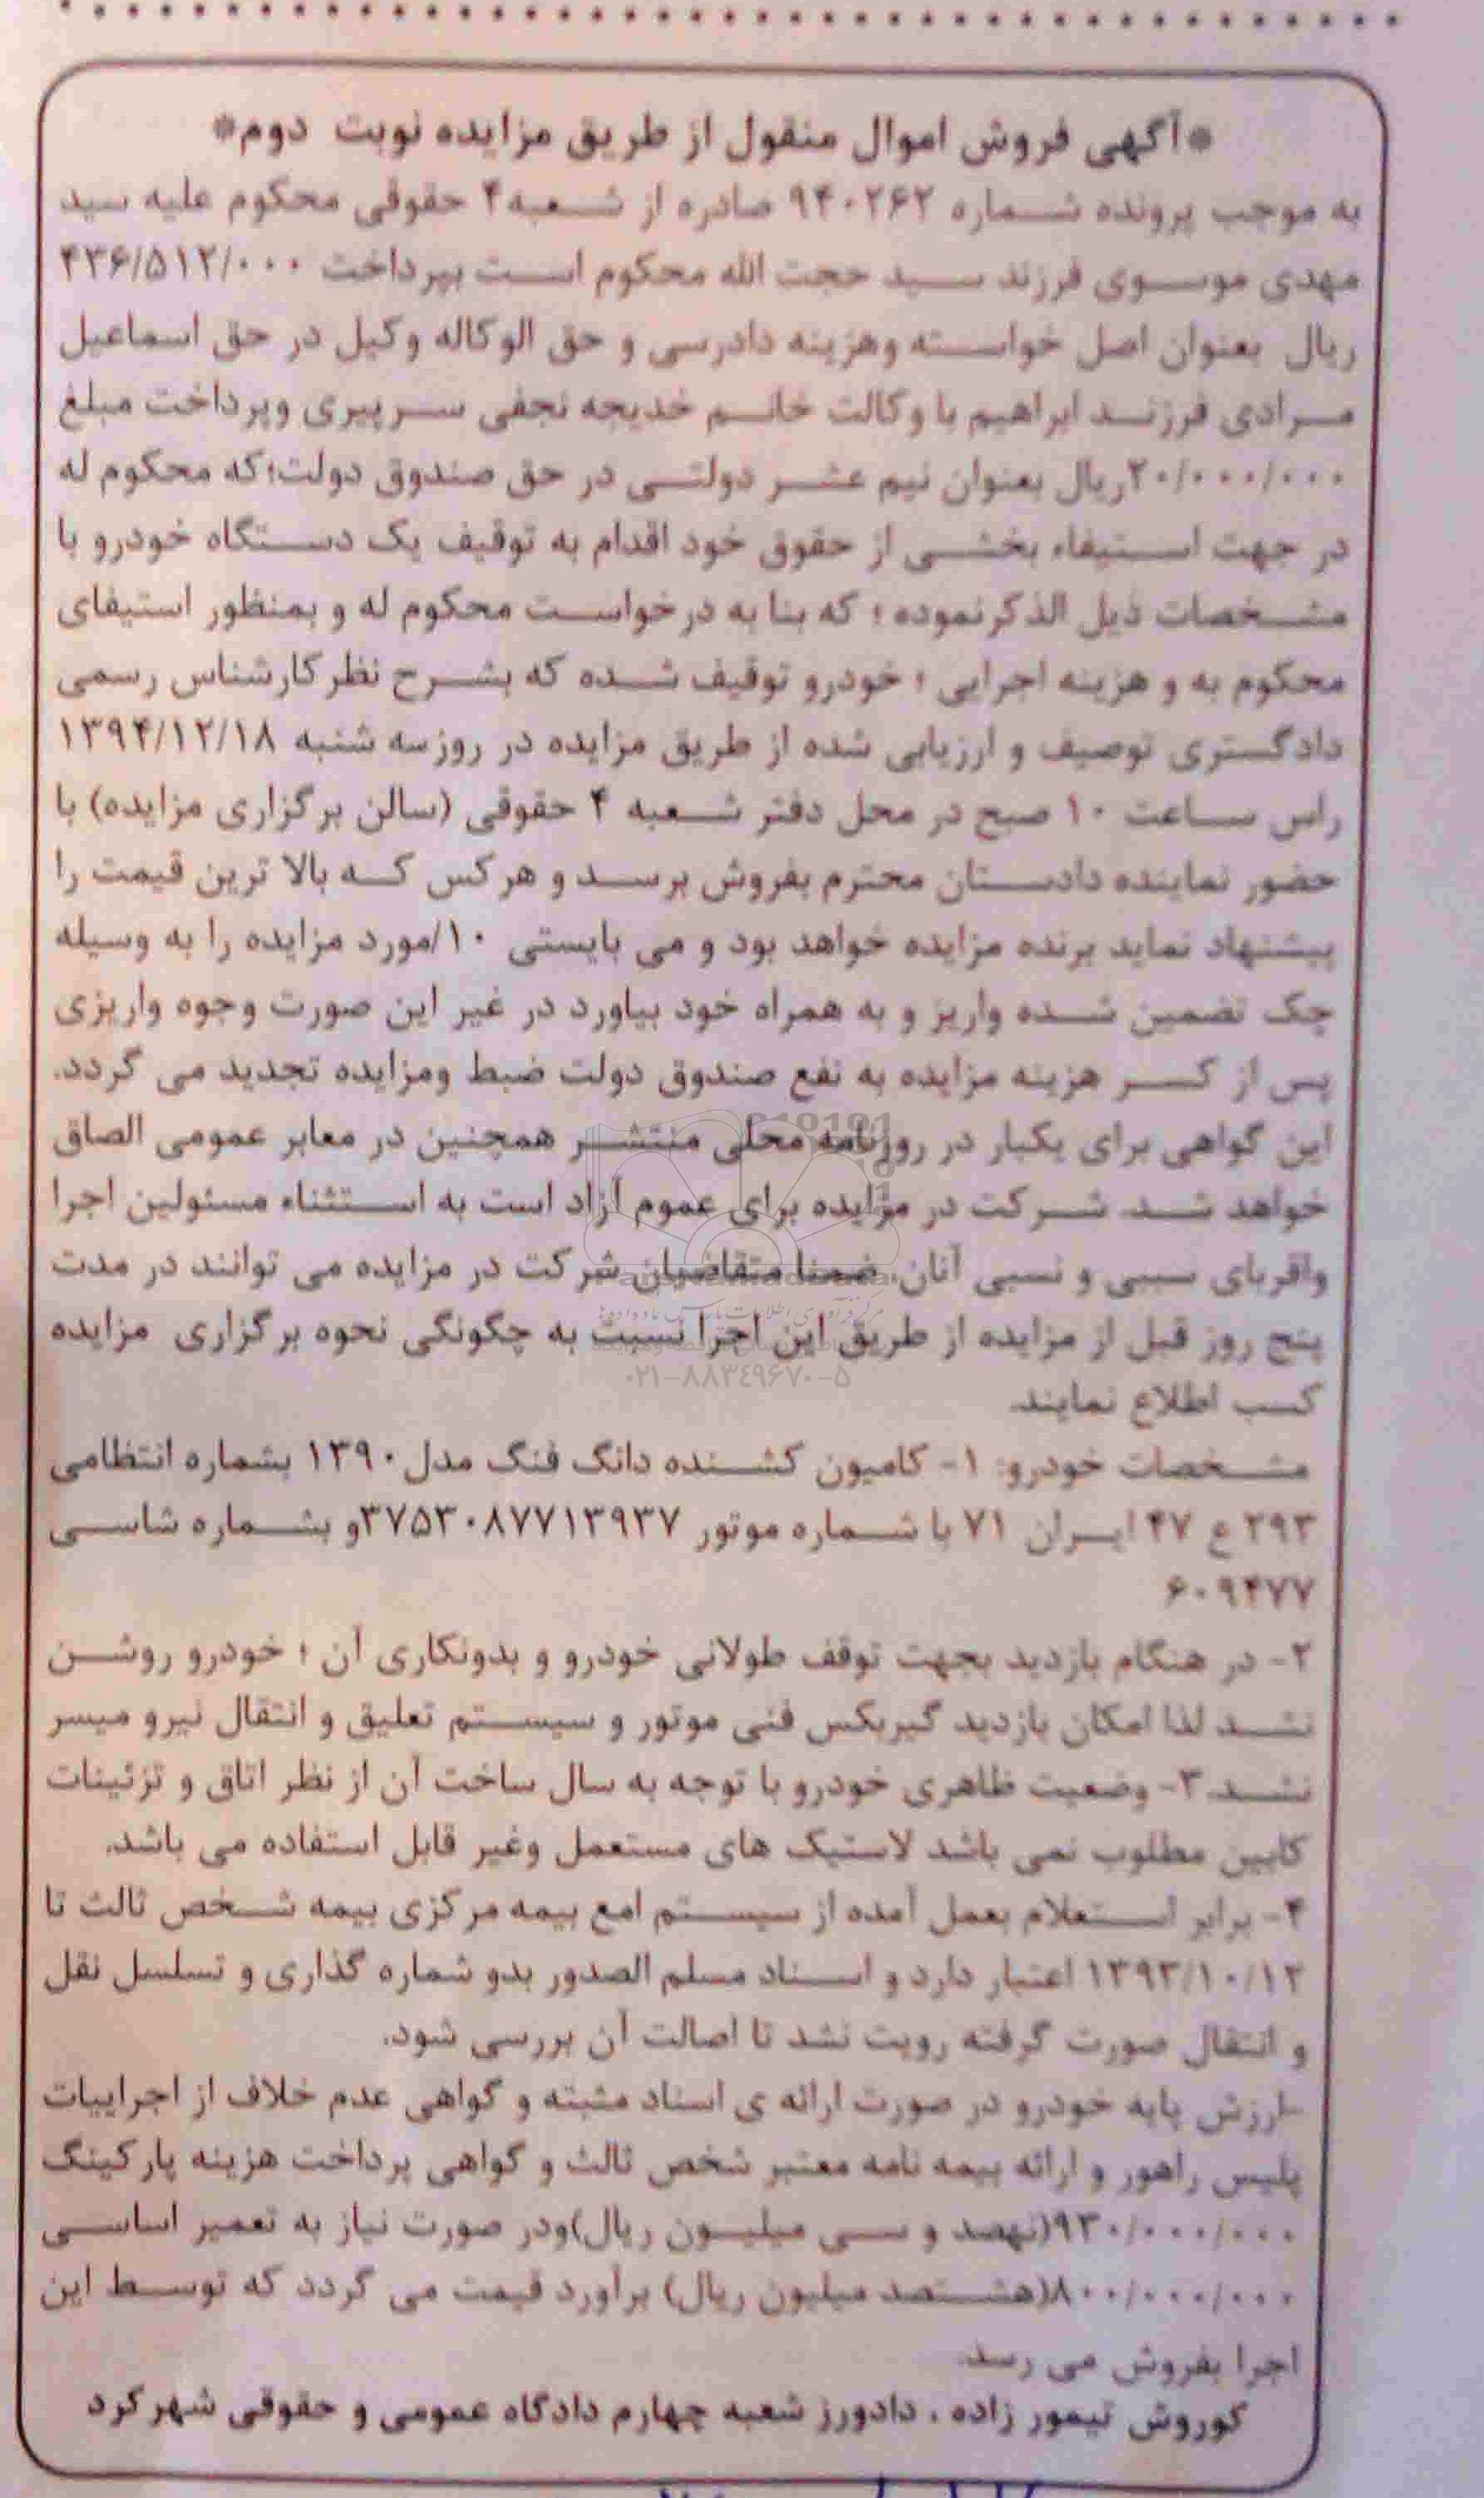 *آگهی فروش اموال منقول از طریق مزایده نوبت دوم*
به موجب پرونده شماره ۹۴۰۲۶۲ صادره از شعبه ۴ حقوقی محکوم علیه سید
مهدی موسوی فرزند سید حجت الله محکوم است بپرداخت ۴۳۶/۵۱۲/۰۰۰
ریال بعنوان اصل خواسته وهزینه دادرسی و حق الوکاله وکیل در حق اسماعیل
مرادی فرزند ابراهیم با وکالت خانم خدیجه نجفی سرپیری وپرداخت مبلغ
۲۰/۰۰۰/۰۰۰ریال بعنوان نیم عشر دولتی در حق صندوق دولت؛که محکوم له
در جهت استیفاء بخشی از حقوق خود اقدام به توقیف یک دستگاه خودرو با
مشخصات ذیل الذکرنموده ؛ که بنا به درخواست محکوم له و بمنظور استیفای
محکوم به و هزینه اجرایی ؛ خودرو توقیف شده که بشرح نظرکارشناس رسمی
دادگستری توصیف و ارزیابی شده از طریق مزایده در روزسه شنبه ۱۳۹۴/۱۲/۱۸
راس ساعت ۱۰ صبح در محل دفتر شعبه ۴ حقوقی (سالن برگزاری مزایده) با
حضور نماینده دادستان محترم بفروش برسد و هرکس که بالا ترین قیمت را
پیشنهاد نماید برنده مزایده خواهد بود و می بایستی ۱۰/مورد مزایده را به وسیله
چک تضمین شده واریز و به همراه خود بیاورد در غیر این صورت وجوه واریزی
پس از کسر هزینه مزایده به نفع صندوق دولت ضبط ومزایده تجدید می گردد.
این گواهی برای یکبار در روزنامه محلی منتشر همچنین در معابر عمومی الصاق
خواهد شد. شرکت در مزایده برای عموم آزاد است به استثناء مسئولین اجرا
واقربای سببی و نسبی آنان. ضمنا متقاضیان شرکت در مزایده می توانند در مدت
پنج روز قبل از مزایده از طریق این اجرا نسبت به چگونگی نحوه برگزاری مزایده
۰۲۱-۸۸۳۴۹۶۷۰-۵
کسب اطلاع نمایند.
مشخصات خودرو: ۱- کامیون کشنده دانگ فنگ مدل۱۳۹۰ بشماره انتظامی
۲۹۳ ع ۴۷ ایران ۷۱ با شماره موتور ۳۷۵۳۰۸۷۷۱۳۹۳۷و بشماره شاسی
۶۰۹۴۷۷
۲- در هنگام بازدید بجهت توقف طولانی خودرو و بدونکاری آن ؛ خودرو روشن
نشد لذا امکان بازدید گیربکس فنی موتور و سیستم تعلیق و انتقال نیرو میسر
نشد.۳- وضعیت ظاهری خودرو با توجه به سال ساخت آن از نظر اتاق و تزئینات
کابین مطلوب نمی باشد لاستیک های مستعمل وغیر قابل استفاده می باشد.
۴- برابر استعلام بعمل آمده از سیستم امع بیمه مرکزی بیمه شخص ثالث تا
۱۳۹۳/۱۰/۱۲ اعتبار دارد و اسناد مسلم الصدور بدو شماره گذاری و تسلسل نقل
و انتقال صورت گرفته رویت نشد تا اصالت آن بررسی شود.
-ارزش پایه خودرو در صورت ارائه ی اسناد مثبته و گواهی عدم خلاف از اجراییات
پلیس راهور و ارائه بیمه نامه معتبر شخص ثالث و گواهی پرداخت هزینه پارکینگ
۹۳۰/۰۰۰/۰۰۰(نهصد و سی میلیون ریال)ودر صورت نیاز به تعمیر اساسی
۸۰۰/۰۰۰/۰۰۰(هشتصد میلیون ریال) برآورد قیمت می گردد که توسط این
اجرا بفروش می رسد.
کوروش تیمور زاده . دادورز شعبه چهارم دادگاه عمومی و حقوقی شهرکرد